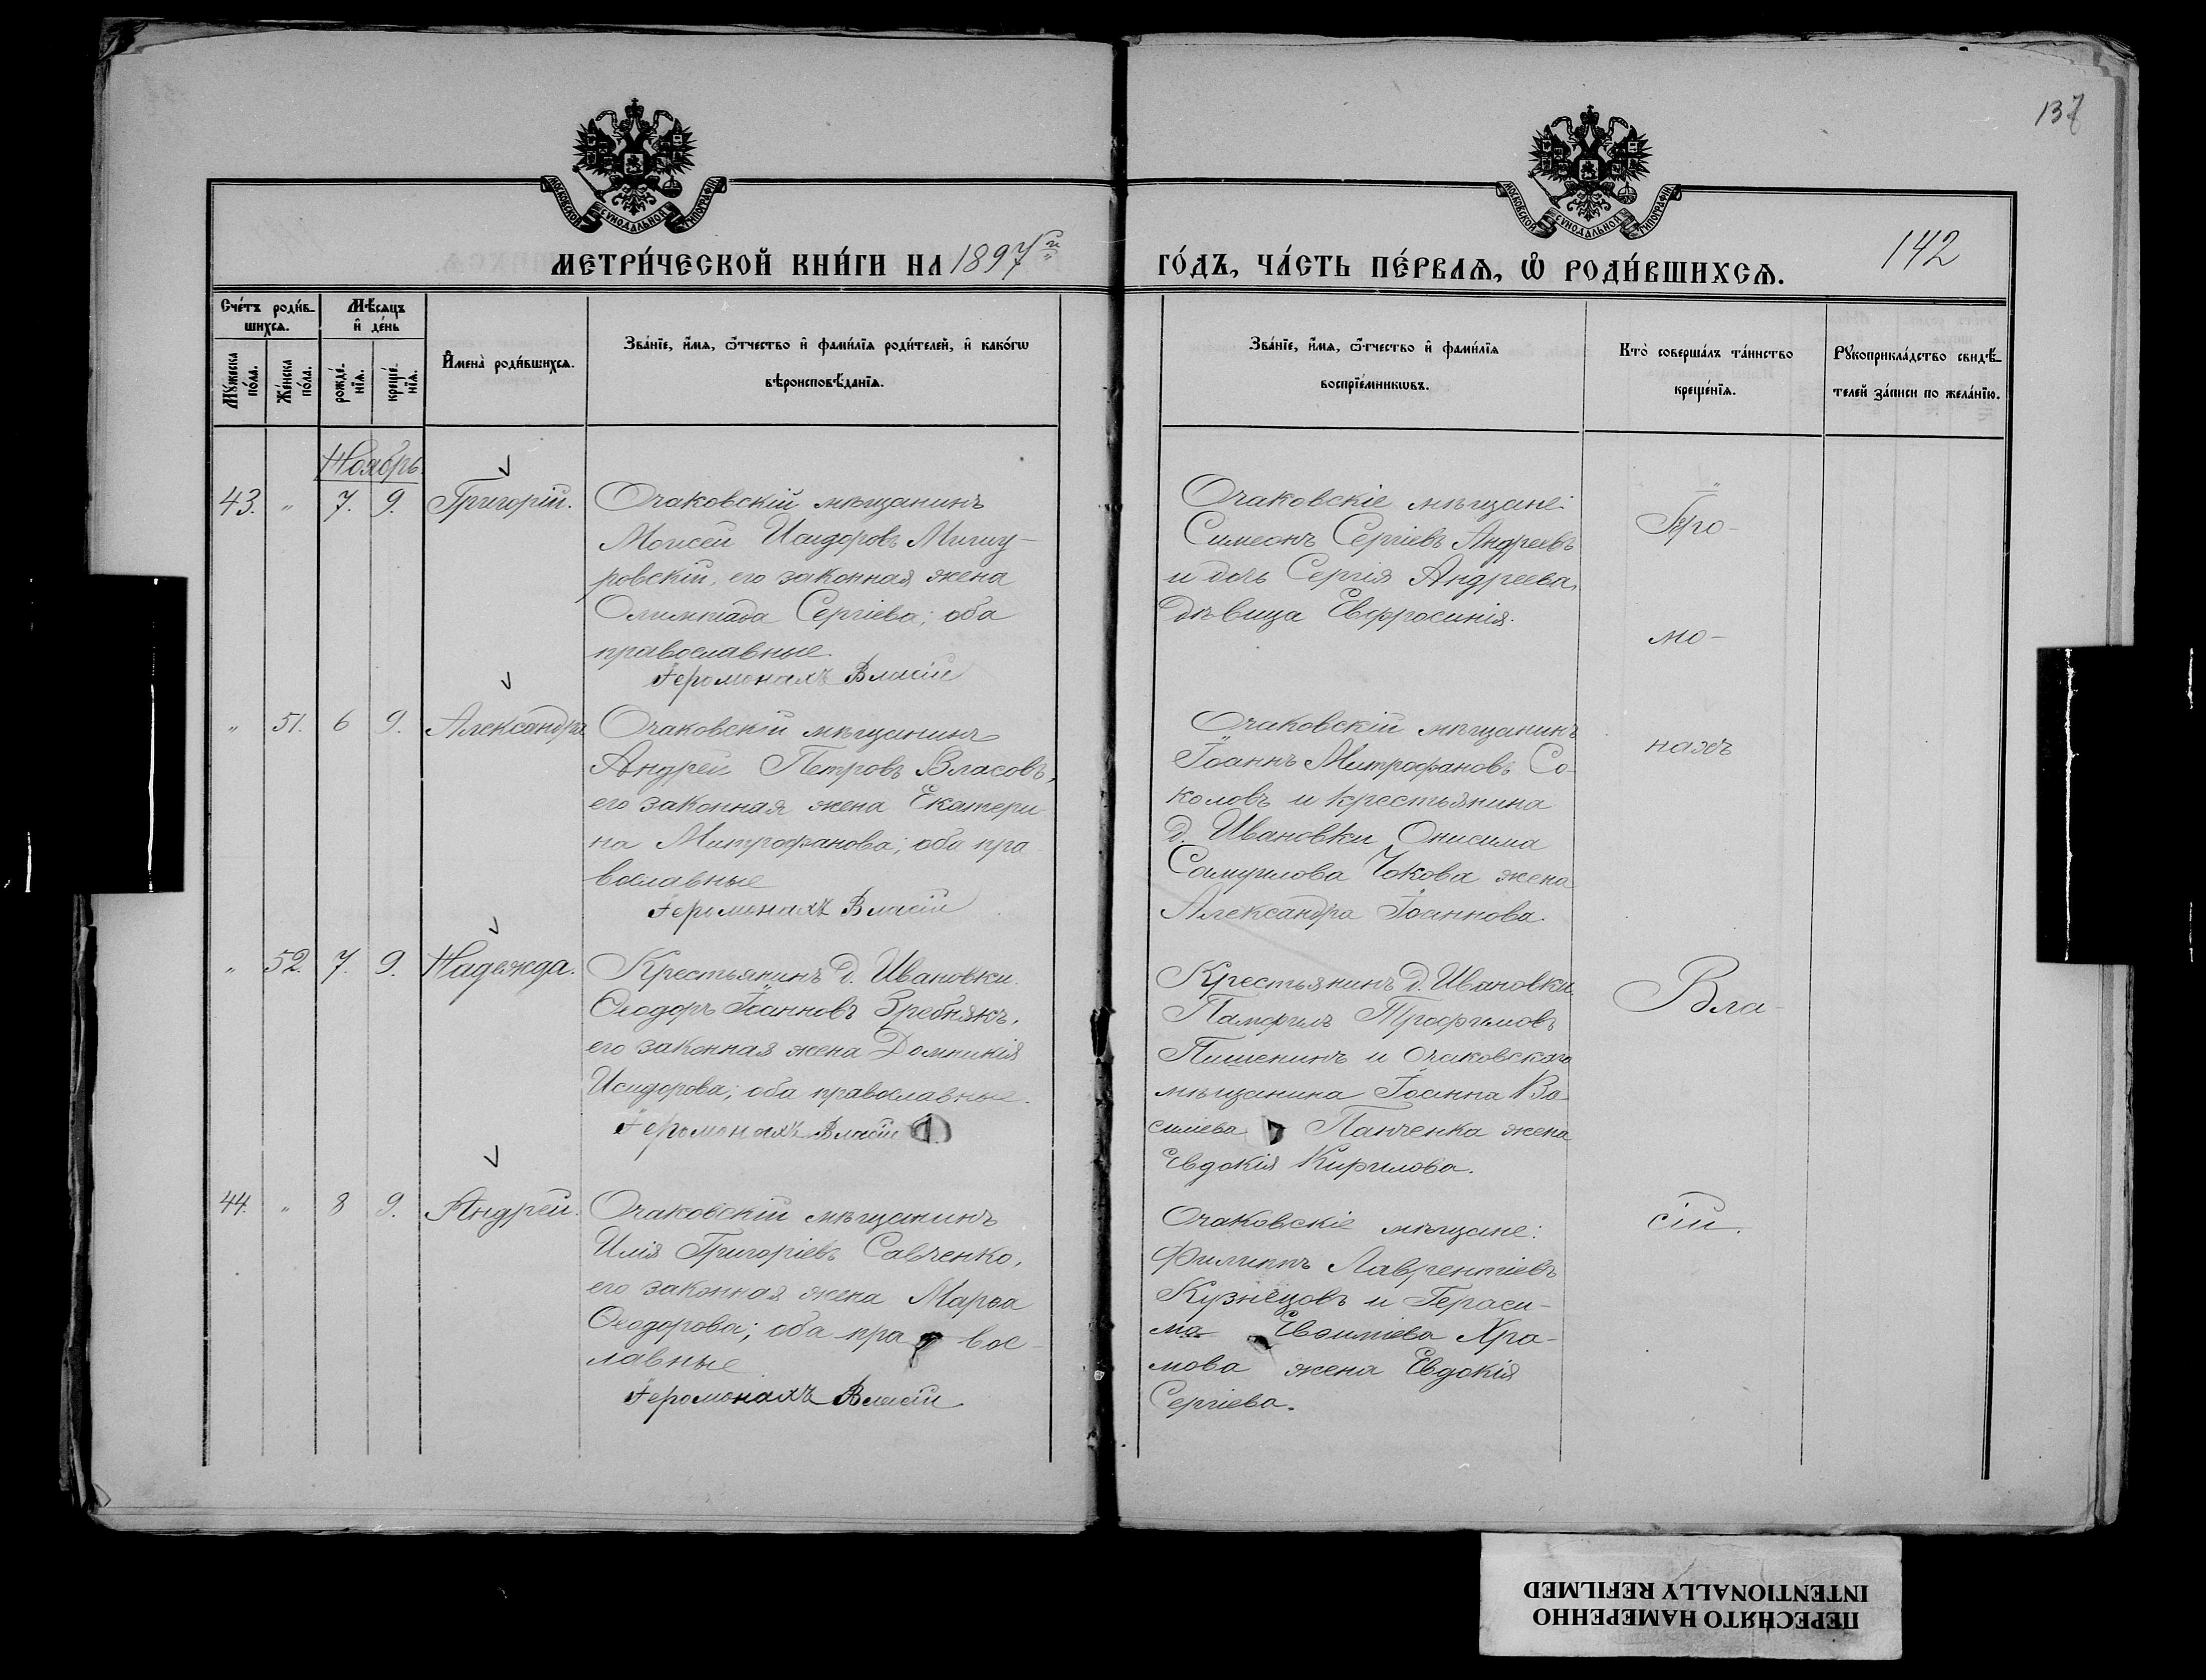 137
МОСКОВСКОЙ СѴНОДАЛЬНОЙ ТИПОГРАФІИ
МОСКОВСКОЙ СѴНОДАЛЬНОЙ ТИПОГРАФІИ
МЕТРИ́ЧЕСКОЙ КНИ́ГИ НА 1897 г.
ГО́ДЪ, ЧА́СТЬ ПЕ́РВАЯ, Ѿ РОДИ́ВШИХСЯ.
142
Сче́тъ роди́в-
шихся.
Мѣ́сяцъ
и҆ де́нь
Мꙋ́жеска
по́ла.
Же́нска
по́ла.
рожде́-
нїя.
креще́-
нїя.
И҆мена̀ роди́вшихся.
Зва́нїе, и҆́мя, ѻ҆́тчество и҆ фами́лїя роди́телей, и҆ како́гѡ
вѣроисповѣ́данїя.
Зва́нїе, и҆́мя, ѻ҆́тчество и҆ фами́лїя
воспрїе́мникѡвъ.
Кто̀ соверша́лъ та́инство
креще́нїя.
Рꙋкоприкла́дство свидѣ́-
телей за́писи по жела́нїю.
Ноябрь.
43. " 7. 9. Григорій.
Очаковскій мѣщанинъ
Моисей Исидоровъ Мишу-
ровскій, его законная жена
Олимпіада Сергіева; оба
православные.
Іеромонахъ Власій
Очаковскіе мѣщане:
Симеонъ Сергіевъ Андреевъ
и дочь Сергія Андреева,
дѣвица Евфросинія.
" 51. 6 9. Александра
Очаковскій мѣщанинъ
Андрей Петровъ Власовъ,
его законная жена Екатери-
на Митрофанова; оба пра-
вославные
Іеромонахъ Власій
Очаковскій мѣщанинъ
Іоаннъ Митрофановъ Со-
коловъ и крестьянина
д. Ивановки Онисима
Самуилова Чокова жена
Александра Іоаннова.
" 52. 7. 9. Надежда.
Крестьянинъ д. Ивановки
Ѳеодоръ Іоанновъ Зребнякъ,
его законная жена Домникія
Исидорова; оба православные.
Іеромонахъ Власій
Крестьянинъ д. Ивановки
Памфилъ Трофимовъ
Пишенинъ и Очаковскаго
мѣщанина Іоанна Ва-
силіева Панченка жена
Евдокія Кирилова.
44. " 8 9. Андрей.
Очаковскій мѣщанинъ
Илія Григоріевъ Савченко,
его законная жена Марѳа
Ѳеодорова; оба пра вос-
лавные
Іеромонахъ Власій
Очаковскіе мѣщане:
Филиппъ Лаврентіевъ
Кузнецовъ и Гераси-
ма Евѳиміева Хра-
мова жена Евдокія
Сергіева.
Іеро-
мо-
нахъ
Вла-
сій.
ПЕРЕСНЯТО НАМЕРЕННО
INTENTIONALLY REFILMED